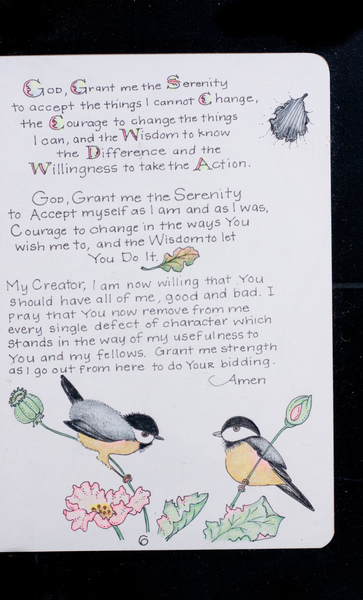 God, Grant me the Serenity
to accept the things I cannot Change,
the Courage to change the things
I can, and the Wisdom to know
the Difference and the
Willingness to take the Action.
God, Grant me the Serenity
to Accept myself as I am and as I was,
Courage to change in the ways You
wish me to, and the Wisdom to let
You Do It.
My Creator, I am now willing that You
should have all of me, good and bad. I
pray that You now remove from me
every single defect of character which
stands in the way of my usefulness to
You and my fellows. Grant me strength
as I go out from here to do Your bidding.
Amen
6